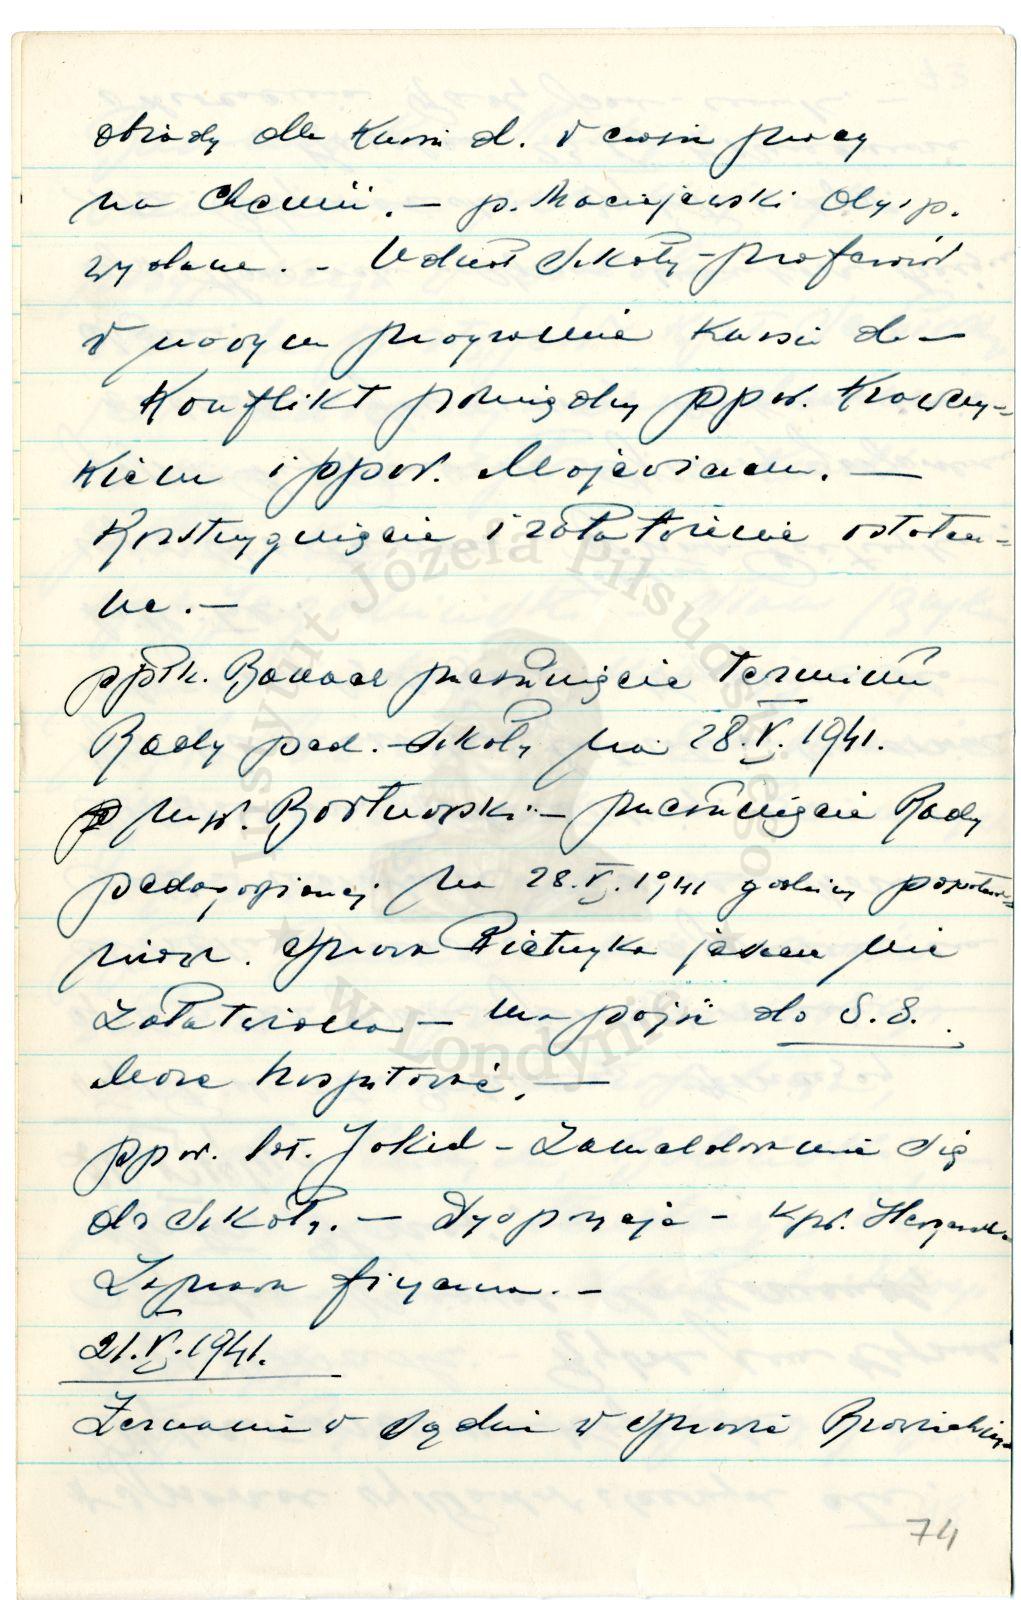 obiady dla Kursu d. w czasie pracy
na Chemii. – p. Maciejewski
wydane. – Udział Szkoły – profesorów
w nowym programie Kursu d. –
Konflikt pomiędzy ppor. Krawczy-
kiem i ppor. Mojewiczem. –
Rozstrzygnięcie i załatwienie ostatecz-
ne. –
ppłk. Banach przesunięcie terminu
Rady ped. Szkoły na 28.V.1941.
p mjr. Bortnowski – przesunięcie Rady
pedagogicznej na 28.V.1941 godziny popołud-
niowe. Sprawa Pietrzyka jeszcze nie
załatwiona – ma pójść do S.S.
Może hospitować. –
ppor. lot. Jokiel – Zameldowanie się
do Szkoły. – Dyspozycje – kpt.
Zaprawa fizyczna. –
21.V.1941.
Zeznanie w Sądzie w sprawie
74
Instytut Józefa Piłsudskiego
w Londynie